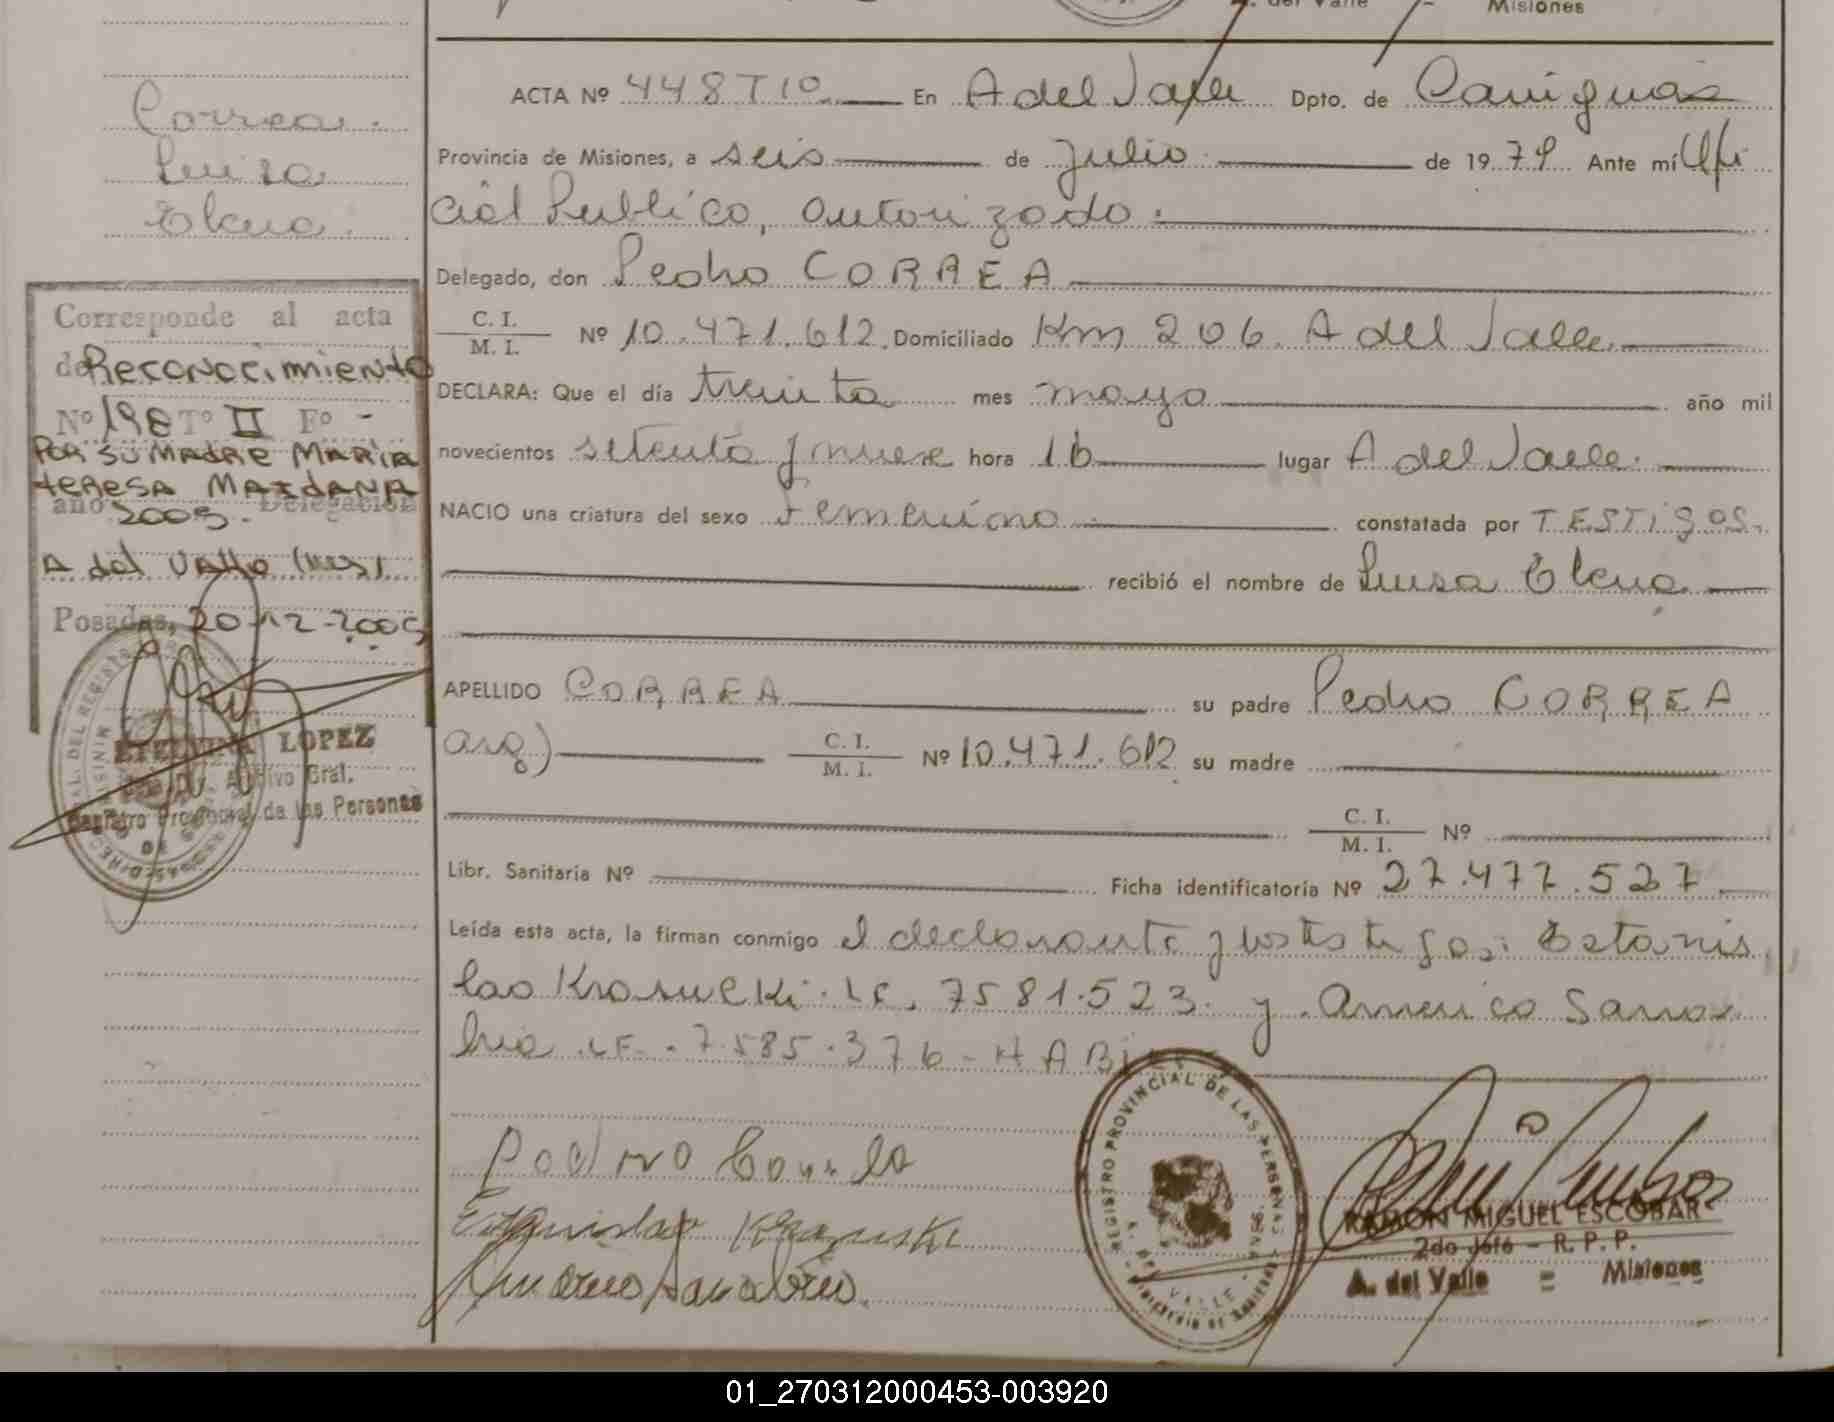 del Valle Misiones
ACTA Nº 448 T I º En A del Valle Dpto. de Cainguas
Provincia de Misiones, a seis de Julio de 1979. Ante mí Ofi
cial Publico, autorizado.
Delegado, don Pedro CORREA
C. I.
M. I. Nº 10.471.612. Domiciliado Km 206. A del Valle.
DECLARA: Que el día treinta mes mayo año mil
novecientos setenta y nueve hora 16 lugar A del Valle.
NACIO una criatura del sexo femenino constatada por TESTigos.
recibió el nombre de Luisa Elena
APELLIDO CORREA su padre Pedro CORREA
arg) C. I.
M. I. Nº 10.471.612 su madre
C. I.
M. I. Nº
Libr. Sanitaria Nº Ficha identificatoria Nº 27.477.527.
Leída esta acta, la firman conmigo el declarante y los testigos: Estanis
lao Krasucki. LE. 7581.523. y Americo Sana
bria. LE. 7.585.376 - HABiles
Pedro Correa
Estanislao
Americo Sanabria.
REGISTRO PROVINCIAL DE LAS PERSONAS
A. DEL VALLE
RAMON MIGUEL ESCOBAR
2do Jefe - R. P. P.
A. del Valle = Misiones
Correa.
Luisa
Elena.
Corresponde al acta
de Reconocimiento
Nº 198 Tº II Fº -
POR SU MADRE MARIA
TERESA MAIDANA
año 2005. Delegación
A del Valle (Mis).
Posadas, 20-12-2005
LOPEZ
Archivo Gral.
Registro Provincial de las Personas
01_270312000453-003920